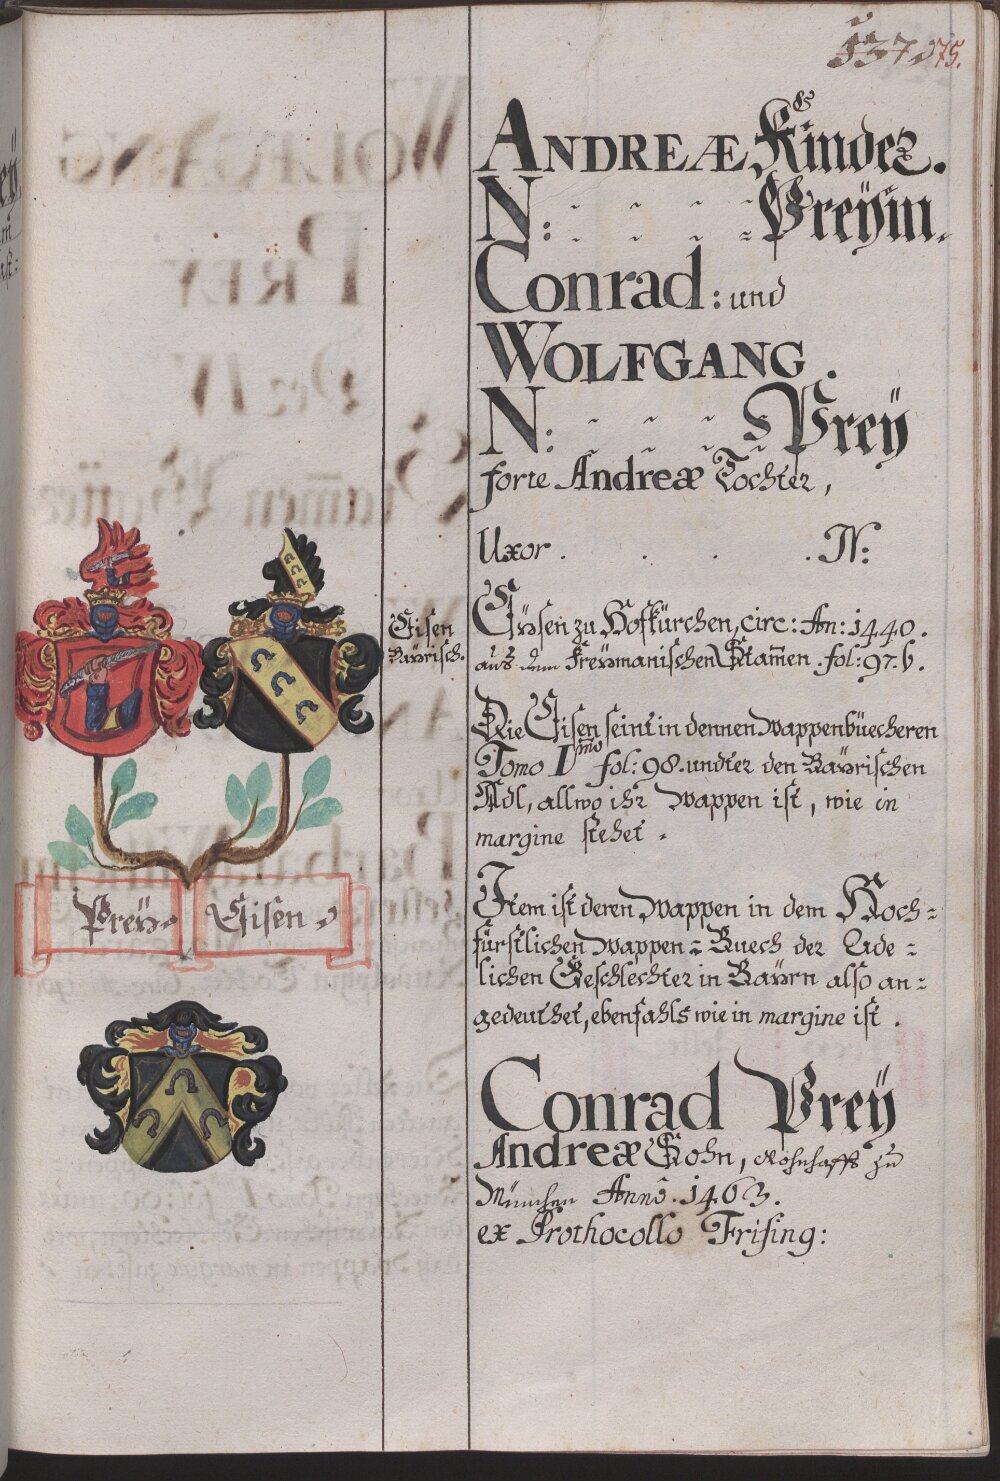 537 175.
ANDREÆ Kinder.
N: Preÿin.
Conrad: und
WOLFGANG.
N: Preÿ
forte Andreæ Tochter,
Uxor . . . . N:
Eÿsen zu Hofkürchen, circ: An: 1440.
aus dem Freÿmanischen Stam̄en. fol: 97. b.
Eisen
Baÿrisch.
Die Eisen seint in dennen Wappenbüecheren
Tomo I.mo fol: 98. undter den Baÿrischen
Adl, allwo ihr Wappen ist, wie in
margine stehet.
Preÿ
Eisen
Item ist deren Wappen in dem Hoch-
fürstlichen Wappen-Buech der Ade-
lichen Geschlechter in Baÿrn also an-
gedeuthet, ebenfahls wie in margine ist.
Conrad Preÿ
Andreæ Sohn, Wohnhafft zu
München Anno. 1463.
ex Prothocollo Frising: